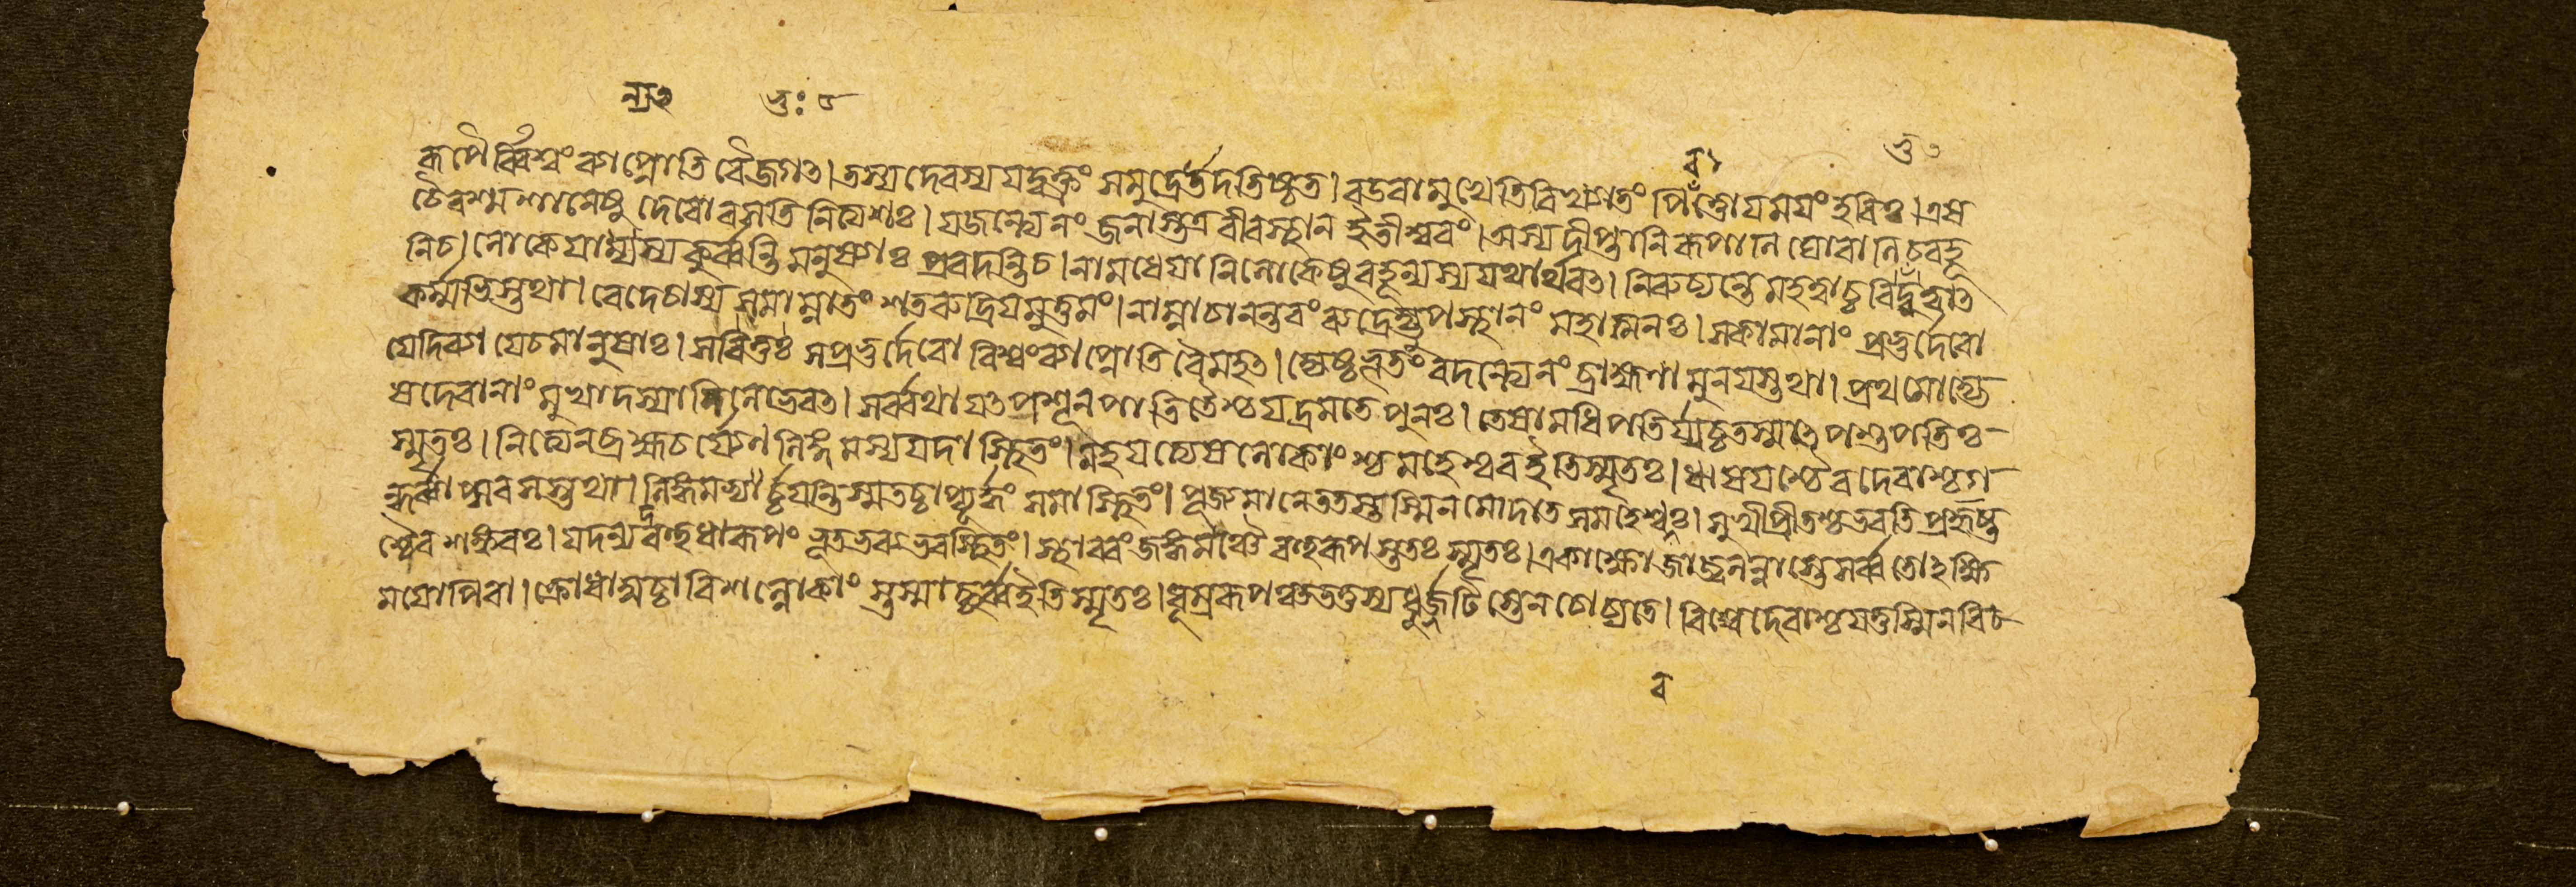 রূপৈর্ব্বিশ্বং ব্যাপ্নোতি বৈজগত্। তস্যদেবস্যযদ্বক্ত্রং সমুদ্রেতদতিষ্ঠত। বডবামুখেতিবিখ্যাতং পিবঁত্তোযমযং হবিঃ। এষ
চৈবশ্মশানেষু দেবোবসতিনিত্যশঃ। যজন্ত্যেনং জনাস্তত্রবীরস্থান ইতীশ্বরং। অস্যদীপ্তানিরূপানি ঘোরানিচবহূ
নিচ। লোকেযান্যস্য কুর্ব্বন্তি মনুষ্যাঃ প্রবদন্তিচ। নামধেযানিলোকেষুবহূন্যস্যযথার্থবত্। নিরুচ্যন্তেমহত্বাচ্চবিভুত্বাত্
কর্ম্মভিস্তথা। বেদেচাস্য সমাম্নাতং শতরুদ্রিযমুত্তমং। নাম্নাচানন্তরং রুদ্রেত্যুপস্থানং মহাত্মনঃ। সকামানাং প্রভুর্দেবো
যেদিব্যা যেচমানুষাঃ। সবিভুঃ সপ্রভুর্দেবো বিশ্বংব্যাপ্নোতি বৈমহত্। জ্যেষ্ঠভূতং বদন্ত্যেনং ব্রাহ্মণা মুনযস্তথা। প্রথমোহ্যে
ষদেবানাং মুখাদস্যানিলোভবত্। সর্ব্বথাযত্পশূনপাতিতৈশ্চযদ্রমতে পুনঃ। তেষামধিপতির্যচ্চতস্মাত্পশুপতিঃ
স্মৃতঃ। নিত্যেনব্রহ্মচর্য্যেণ লিঙ্গমস্যযদাস্থিতং। মহযত্যেষলোকাংশ্চ মহেশ্বরইতিস্মৃতঃ। ঋষযশ্চৈবদেবাশ্চগ
ন্ধর্ব্বাপ্সরসস্তথা। লিঙ্গমস্যার্চ্চযন্তিস্মতচ্চাপ্যূর্দ্ধং সমাস্থিতং। পূজ্যমানেততস্তস্মিনমোদতে সমহেশ্বরঃ। সুখীপ্রীতশ্চভবতিপ্রহৃষ্ট
শ্চৈব শঙ্করঃ। যদস্যবহুধারূপং ভূতভব্যভবস্থিতং। স্থাবরং জঙ্গমঞ্চৈব বহুরূপস্ততঃ স্মৃতঃ। একাক্ষোজাজ্বলন্নাস্তেসর্ব্বতোঽক্ষি
মযোপিবা। ক্রোধাদ্যচ্চাবিশল্লোকাং স্তস্মাচ্ছর্ব্বইতিস্মৃতঃ। ধূম্ররূপঞ্চতত্তস্যধূর্জ্জটিস্তেনচোচ্যতে। বিশ্বেদেবাশ্চযত্তস্মিনবিচ
ব